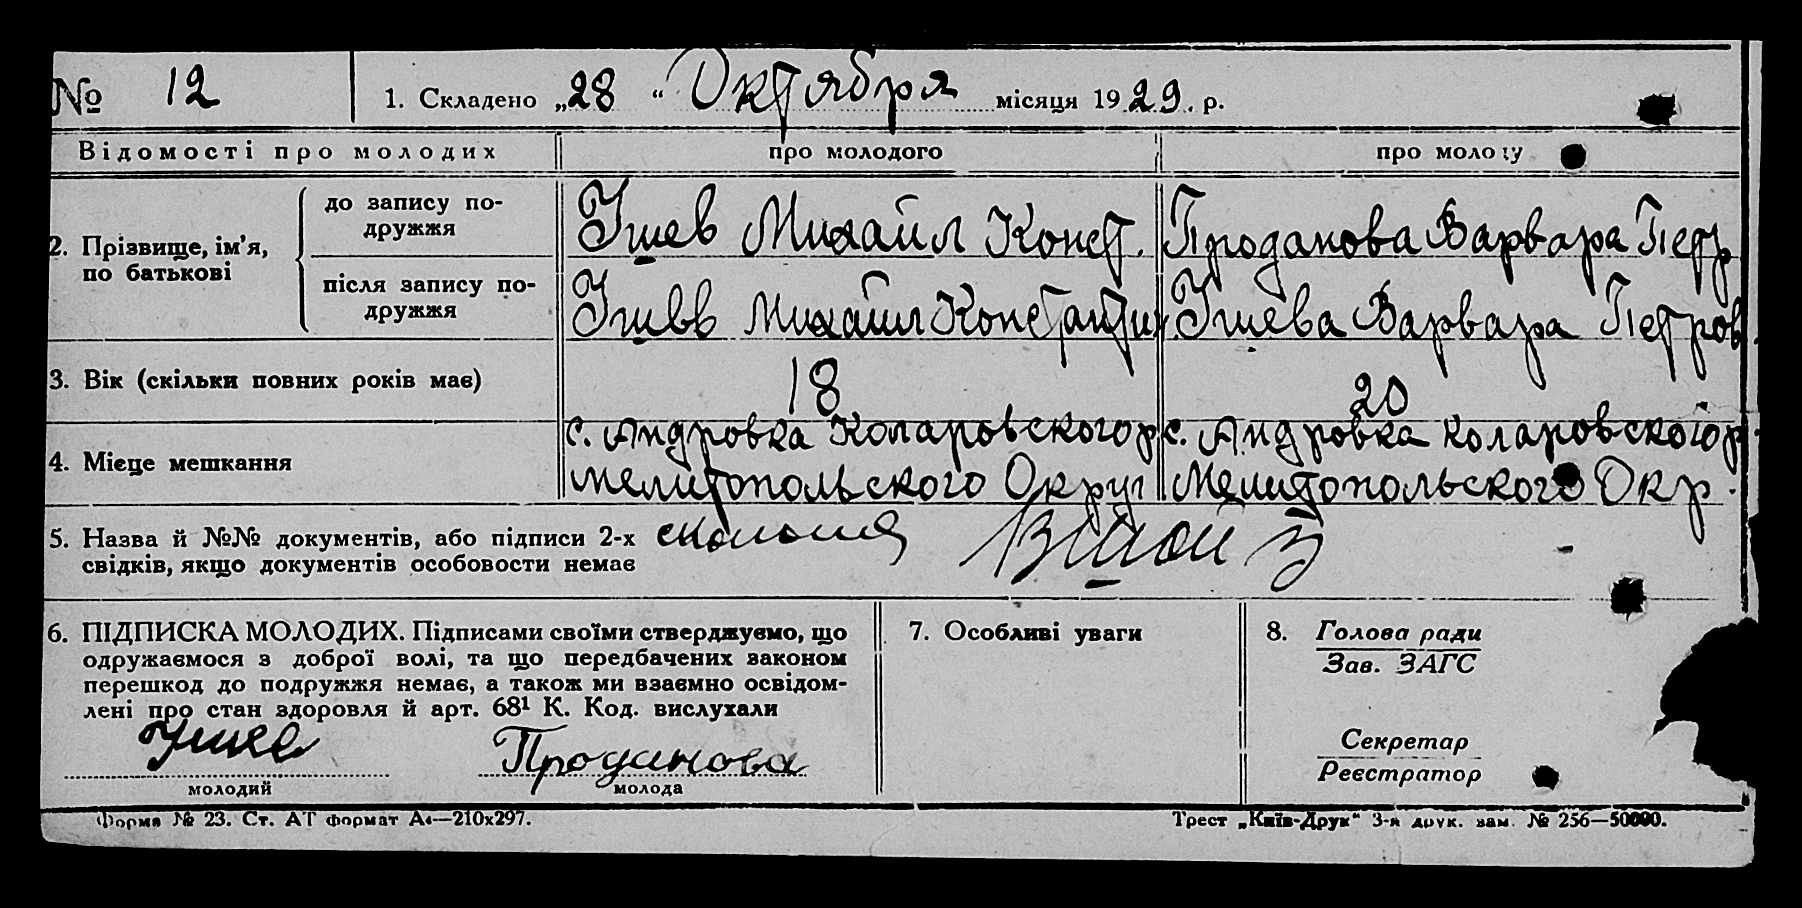 № 12 1. Складено „28“ Октября місяця 1929. р.
Відомості про молодих про молодого про молоду
2. Прізвище, ім’я, по батькові
до запису по-
дружжя
Ушев Михайл Конст. Проданова Варвара Петр
після запису по-
дружжя
Ушев Михайл Константин Ушева Варвара Петров.
3. Вік (скільки повних років має) 18 20
4. Місце мешкання
с. Андровка Коларовского р с. Андровка Коларовского р
Мелитопольского Округ Мелитопольского Окр.
5. Назва й №№ документів, або підписи 2-х
свідків, якщо документів особовости немає
6. ПІДПИСКА МОЛОДИХ. Підписами своїми стверджуємо, що
одружаємося з доброї волі, та що передбачених законом
перешкод до подружжя немає, а також ми взаємно освідом-
лені про стан здоровля й арт. 68¹ К. Код. вислухали
Ушев Проданова
молодий молода
7. Особливі уваги
8. Голова ради
Зав. ЗАГС
Секретар
Реєстратор
Форма № 23. Ст. АТ формат А₄—210х297. Трест „Київ-Друк“ 3-я друк. зам. № 256—50000.